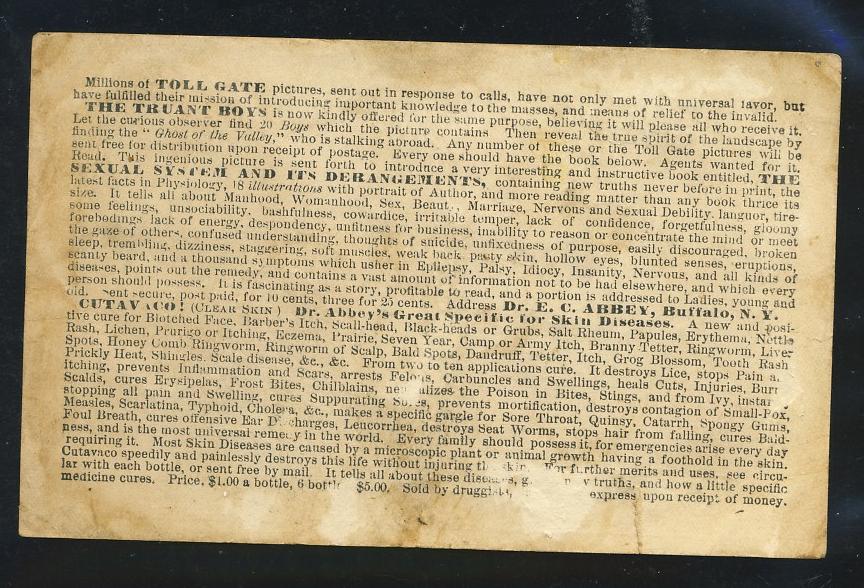 Millions of TOLL GATE pictures, sent out in response to calls, have not only met with universal favor, but
have fulfilled their mission of introducing important knowledge to the masses, and means of relief to the invalid.
THE TRUANT BOYS is now kindly offered for the same purpose, believing it will please all who receive it.
Let the curious observer find 20 Boys which the picture contains Then reveal the true spirit of the landscape by
finding the " Ghost of the Valley," who is stalking abroad. Any number of these or the Toll Gate pictures will be
sent free for distribution upon receipt of postage. Every one should have the book below. Agents wanted for it.
Read. This ingenious picture is sent forth to introduce a very interesting and instructive book entitled, THE
SEXUAL SYSTEM AND ITS DERANGEMENTS, containing new truths never before in print, the
latest facts in Physiology, 18 illustrations with portrait of Author, and more reading matter than any book thrice its
size. It tells all about Manhood, Womanhood, Sex, Beaut , Marriage, Nervous and Sexual Debility. languor, tire-
some feelings, unsociability, bashfulness, cowardice, irritable temper, lack of confidence, forgetfulness, gloomy
forebodings lack of energy, despondency, unfitness for business, inability to reason or concentrate the mind or meet
the gaze of others, confused understanding, thoughts of suicide, unfixedness of purpose, easily discouraged, broken
sleep, trembling, dizziness, staggering, soft muscles, weak back pasty skin, hollow eyes, blunted senses, eruptions,
scanty beard, and a thousand symptoms which usher in Epilepsy, Palsy, Idiocy, Insanity, Nervous, and all kinds of
diseases, points out the remedy, and contains a vast amount of information not to be had elsewhere, and which every
person should possess. It is fascinating as a story, profitable to read, and a portion is addressed to Ladies, young and
old. Sent secure, post paid, for 10 cents, three for 25 cents. Address Dr. E. C. ABBEY, Buffalo, N. Y.
CUTAVACO! (CLEAR SKIN) Dr. Abbey's Great Specific for Skin Diseases. A new and posi-
tive cure for Blotched Face, Barber's Itch, Scall-head, Black-heads or Grubs, Salt Rheum, Papules, Erythema, Nettle
Rash, Lichen, Prurigo or Itching, Eczema, Prairie, Seven Year, Camp or Army Itch, Branny Tetter, Ringworm, Liver
Spots, Honey Comb Ringworm, Ringworm of Scalp, Bald Spots, Dandruff, Tetter, Itch, Grog Blossom, Tooth Rash
Prickly Heat, Shingles. Scale disease, &c., &c. From two to ten applications cure. It destroys Lice, stops Pain a
itching, prevents Inflammation and Scars, arrests Felons, Carbuncles and Swellings, heals Cuts, Injuries, Bur
Scalds, cures Erysipelas, Frost Bites, Chilblains, neu alizes the Poison in Bites, Stings, and from Ivy, instan y
stopping all pain and Swelling, cures Suppurating Sores, prevents mortification, destroys contagion of Small-Pox,
Measles, Scarlatina, Typhoid, Cholera, &c., makes a specific gargle for Sore Throat, Quinsy, Catarrh, Spongy Gums,
Foul Breath, cures offensive Ear D charges, Leucorrhea, destroys Seat Worms, stops hair from falling, cures Bald-
ness, and is the most universal remedy in the world. Every family should possess it, for emergencies arise every day
requiring it. Most Skin Diseases are caused by a microscopic plant or animal growth having a foothold in the skin.
Cutavaco speedily and painlessly destroys this life without injuring th skin. For further merits and uses, see circu-
lar with each bottle, or sent free by mail. It tells all about these diseases, g n w truths, and how a little specific
medicine cures. Price, $1.00 a bottle, 6 bottl $5.00. Sold by druggists, express upon receipt of money.